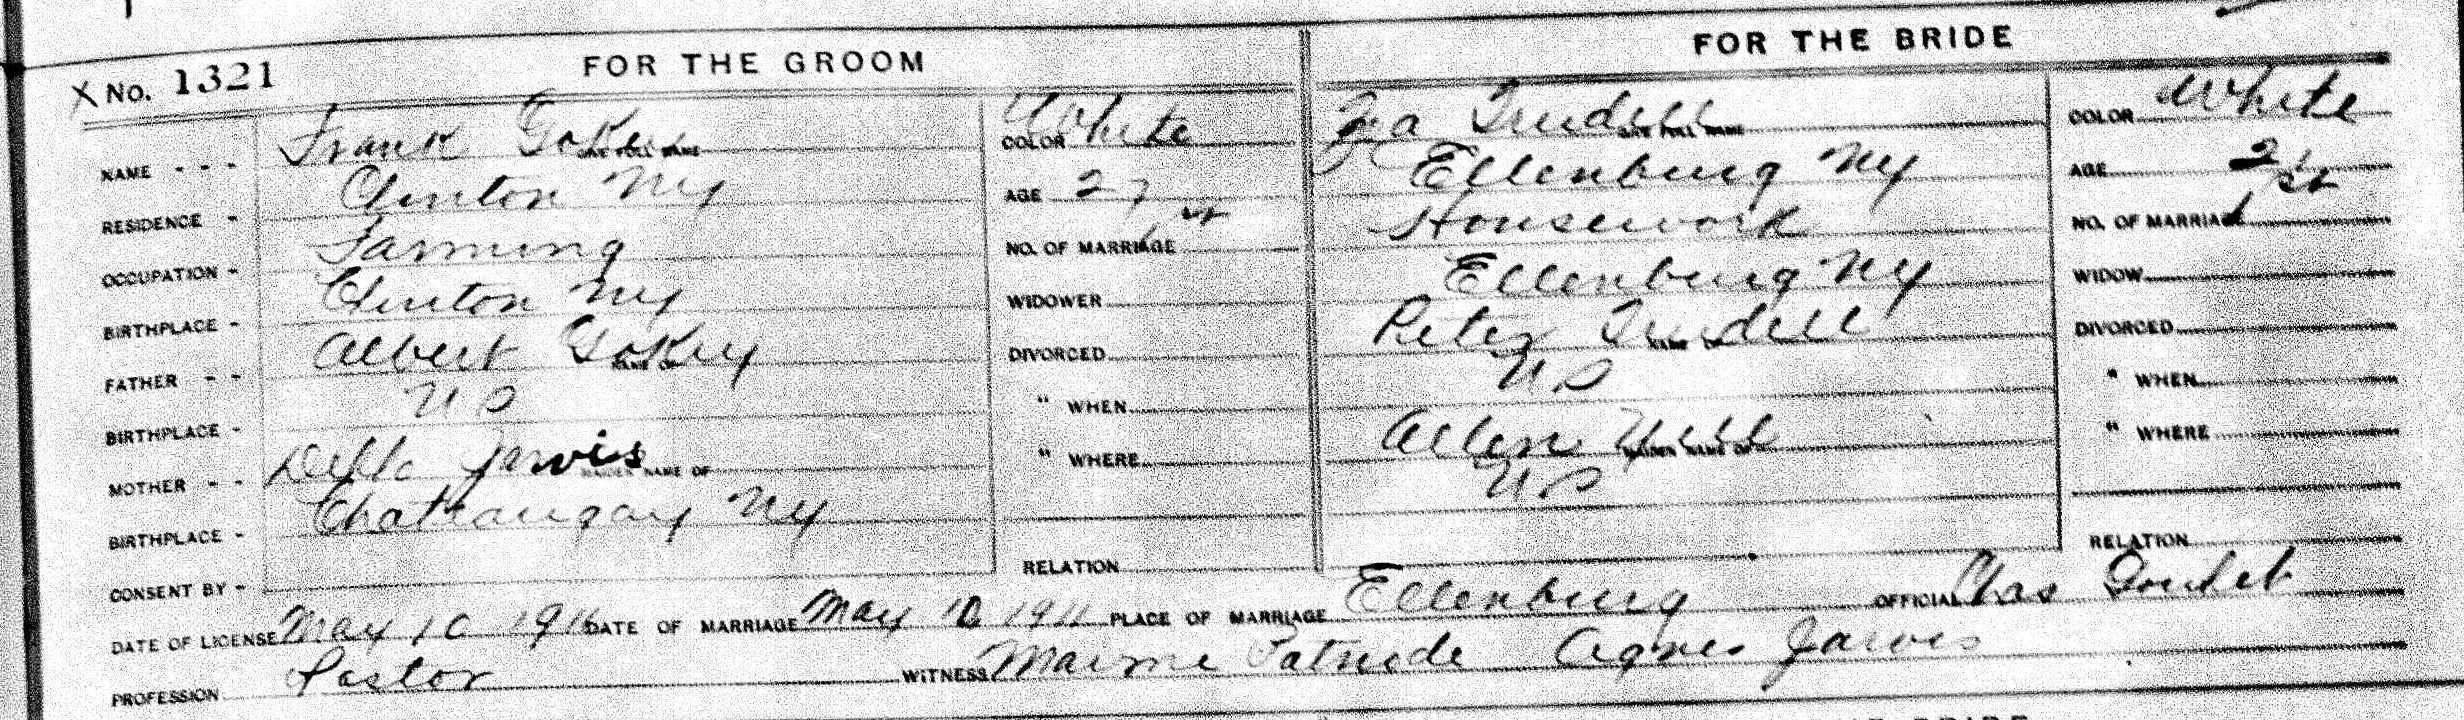 FOR THE GROOM
FOR THE BRIDE
X No. 1321
NAME - - - Frank Gokey GIVE FULL NAME COLOR White
Trudell GIVE FULL NAME COLOR White
RESIDENCE - Clinton NY AGE 27
Ellenburg NY AGE 21
OCCUPATION - Farming NO. OF MARRIAGE 1st
Housework NO. OF MARRIAGE 1st
BIRTHPLACE - Clinton NY WIDOWER
Ellenburg NY WIDOW
FATHER - - Albert Gokey NAME OF DIVORCED
Peter Trudell NAME OF DIVORCED
BIRTHPLACE - U S " WHEN
U S " WHEN
MOTHER - - Della Jarvis MAIDEN NAME OF " WHERE
Allen MAIDEN NAME OF " WHERE
BIRTHPLACE - Chateaugay NY
U S
CONSENT BY - RELATION
RELATION
DATE OF LICENSE May 10 1911 DATE OF MARRIAGE May 10 1911 PLACE OF MARRIAGE Ellenburg OFFICIAL Chas Goulet
PROFESSION Pastor WITNESS Mamie Patnode Agnes Jarvis